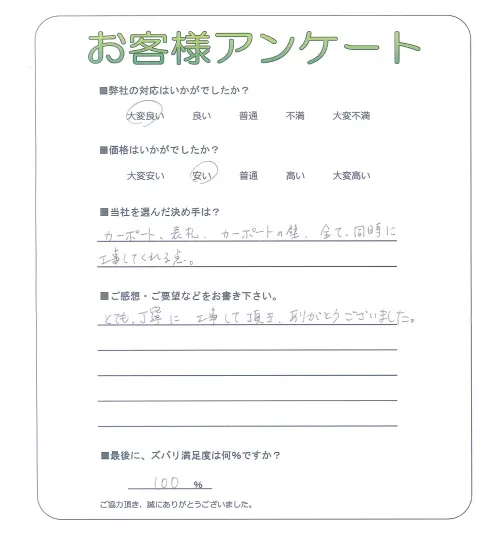 お客様アンケート
■弊社の対応はいかがでしたか？
大変良い 良い 普通 不満 大変不満
■価格はいかがでしたか？
大変安い 安い 普通 高い 大変高い
■当社を選んだ決め手は？
カーポート、表札、カーポートの壁、全て、同時に
工事してくれる点。
■ご感想・ご要望などをお書き下さい。
とても、丁寧に 工事して頂き、有りがとうございました。
■最後に、ズバリ満足度は何%ですか？
100 %
ご協力頂き、誠にありがとうございました。